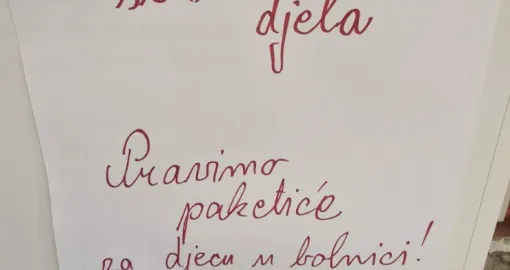 djela
Pravimo
paketiće
za djecu u bolnici!